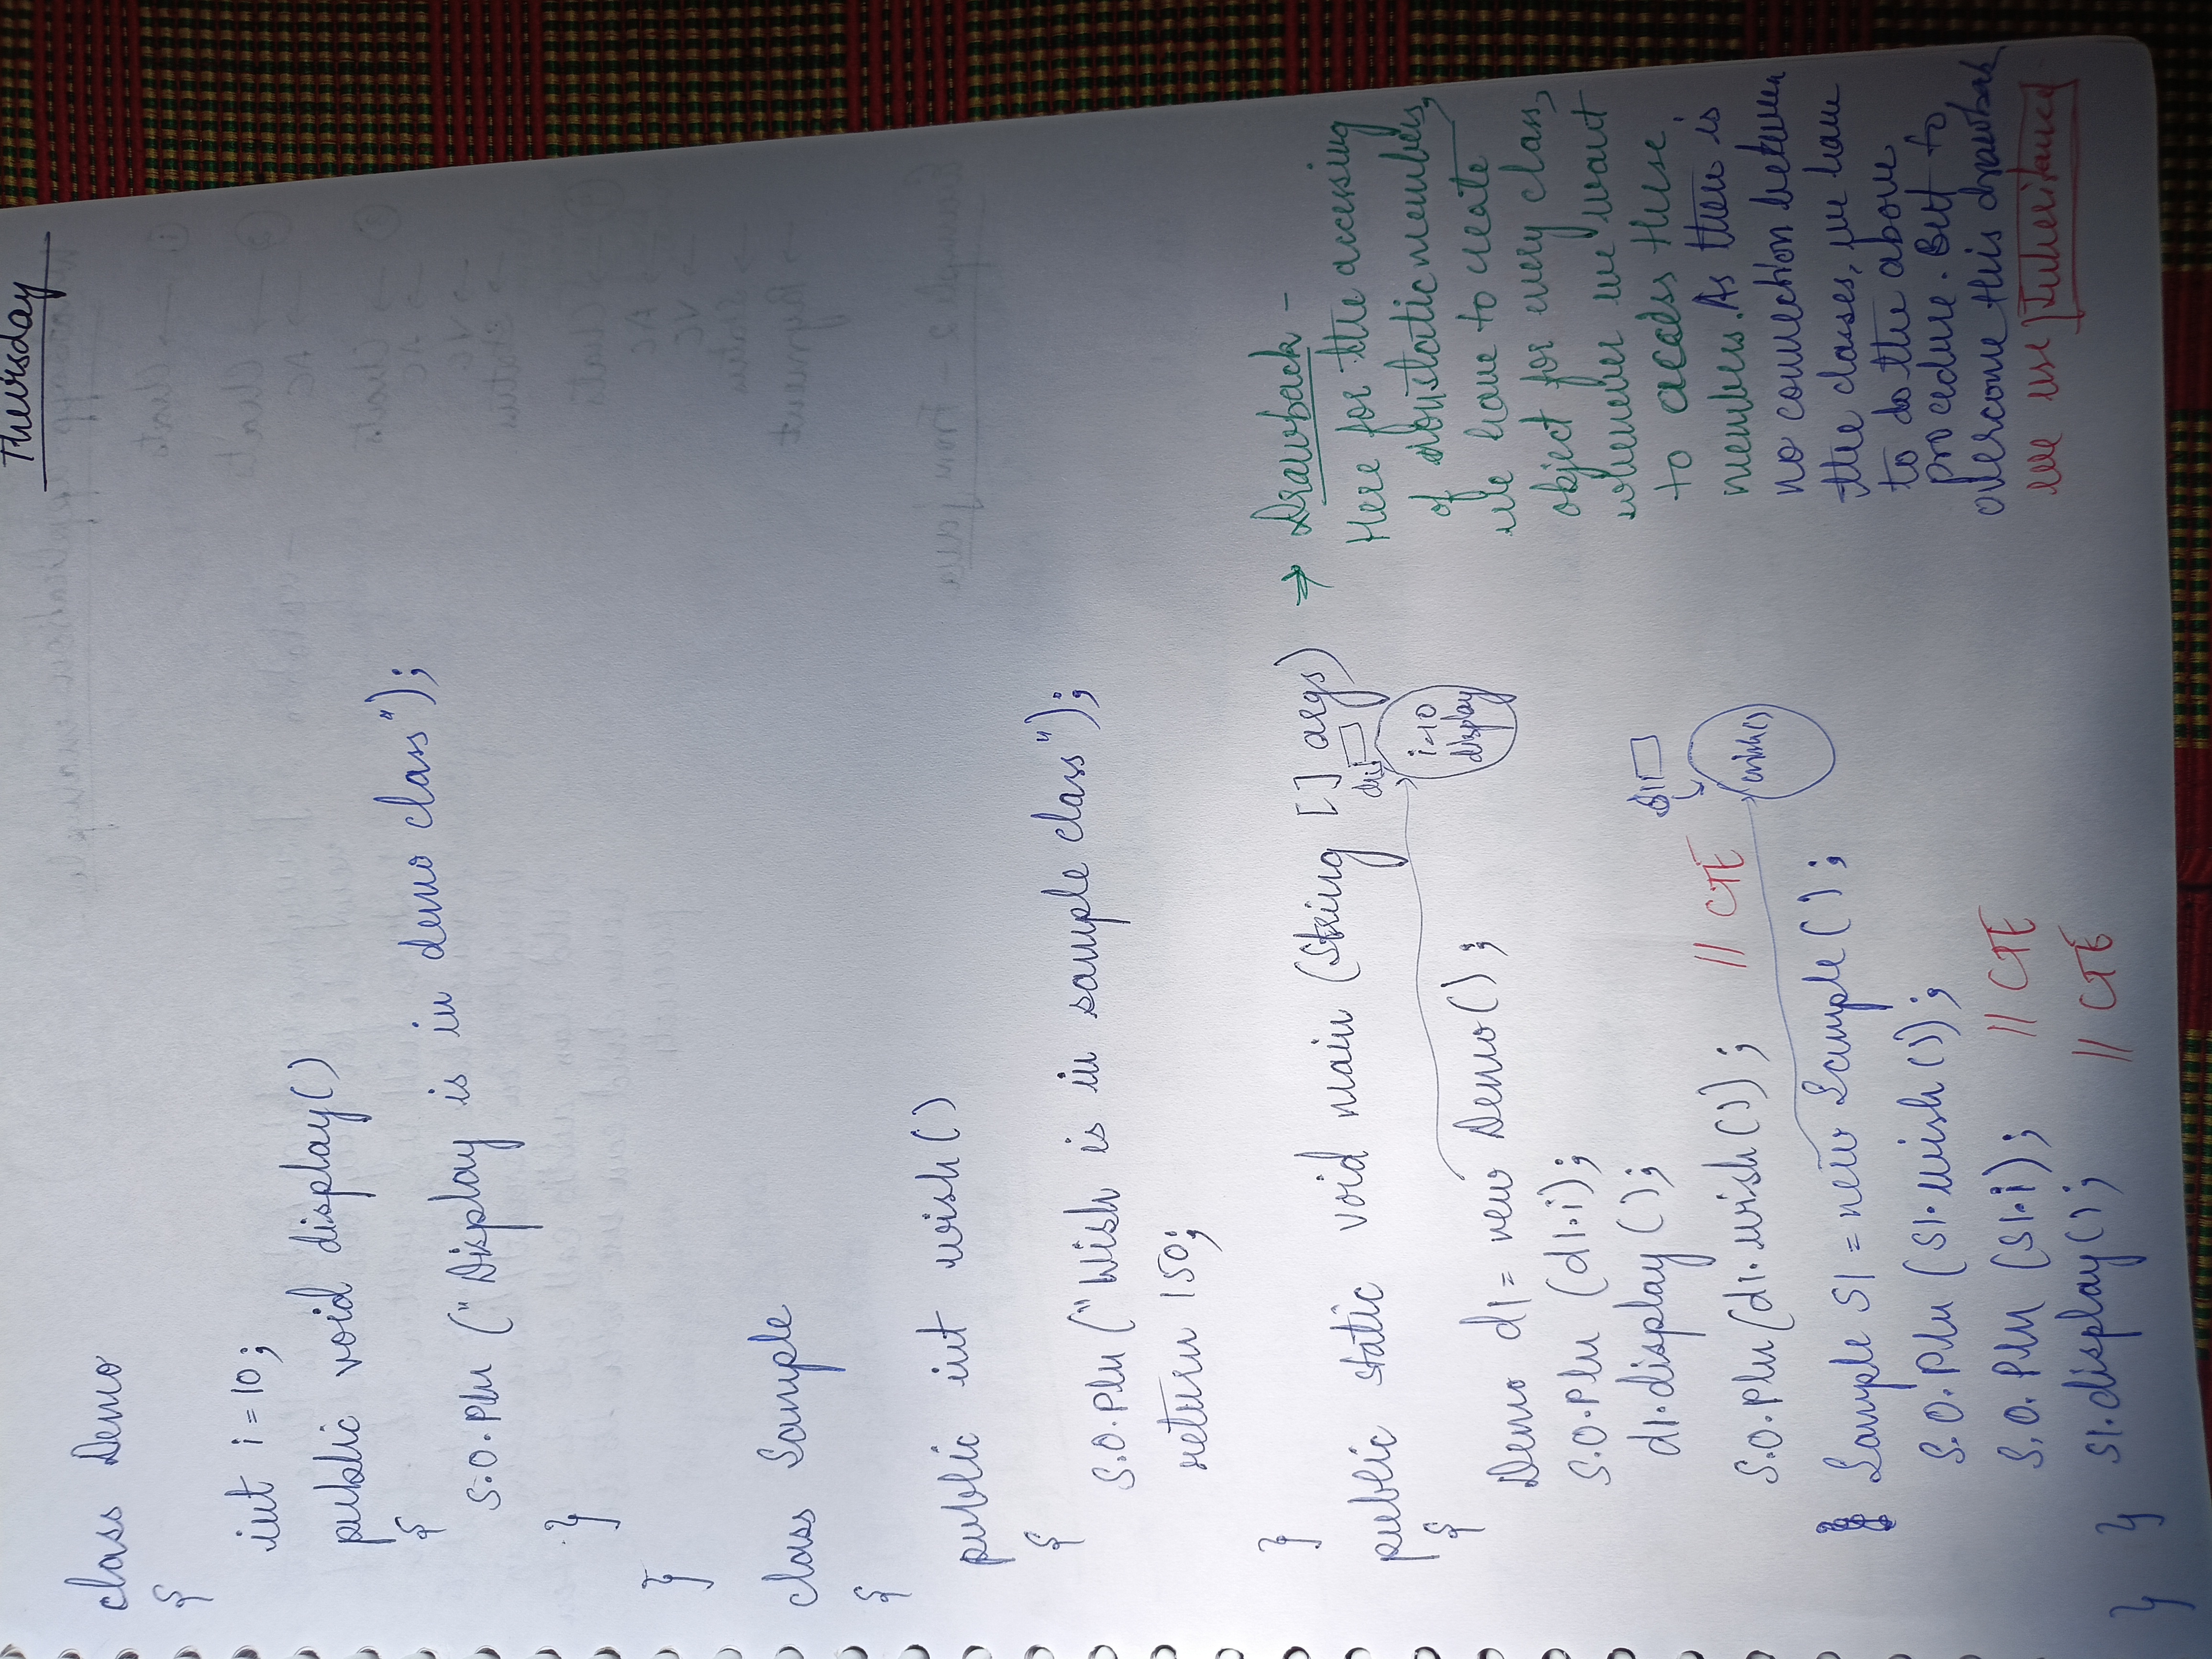 Thursday
class Demo
{
int i = 10;
public void display()
{
S.O.Pln ("Display is in demo class");
}
}
class Sample
{
public int wish()
{
S.O.Pln ("Wish is in sample class");
return 150;
}
public static void main (String [] args)
{
Demo d1 = new Demo();
S.O.Pln (d1.i);
d1.display();
S.O.Pln (d1.wish()); // CTE
Sample s1 = new Sample();
S.O.Pln (s1.wish());
S.O.Pln (s1.i); // CTE
s1.display(); // CTE
}
}
d1
i=10
display
s1
wish()
⇒ Drawback -
Here for the accessing
of nonstatic members,
we have to create
object for every class,
whenever we want
to access these
members. As there is
no connection between
the classes, we have
to do the above
procedure. But to
overcome this drawback
we use Inheritance